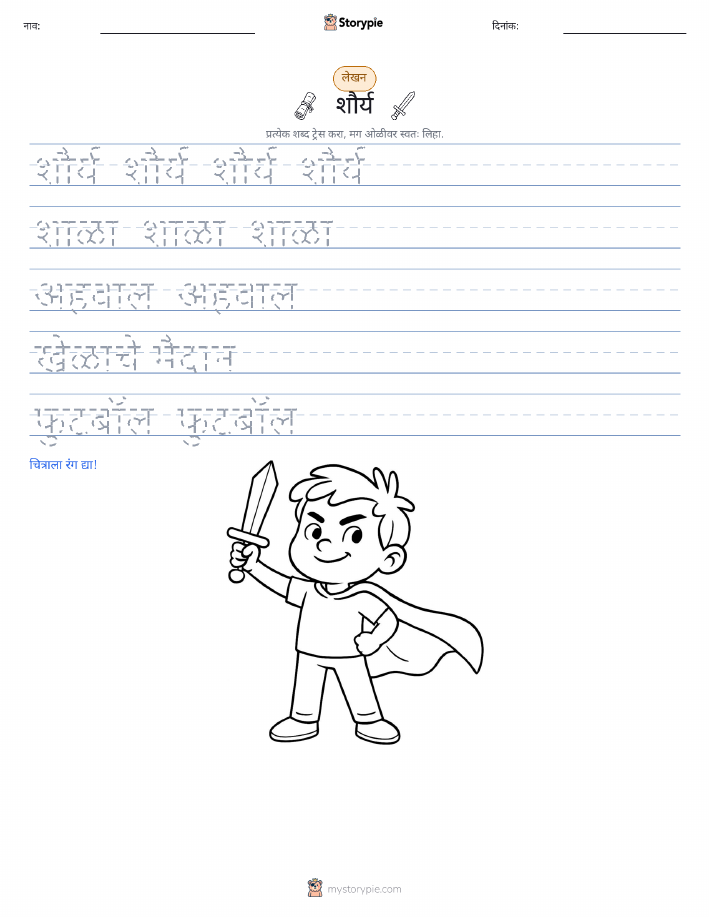 नाव:
Storypie
दिनांक:
लेखन
शौर्य
प्रत्येक शब्द ट्रेस करा, मग ओळीवर स्वतः लिहा.
शौर्य शौर्य शौर्य शौर्य
शाळा शाळा शाळा
अहवाल अहवाल
खेळाचे मैदान
फुटबॉल फुटबॉल
चित्राला रंग द्या!
mystorypie.com